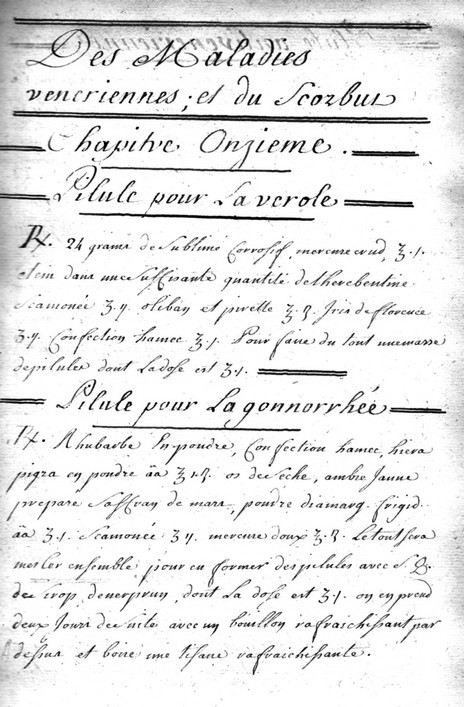 Des Maladies
veneriennes; et du Scorbut
Chapitre Onzieme.
Pilule pour La verole
℞. 24 grains de Sublimé Corrosif, mercure crud, ʒ.1.
etein dans une Suffisante quantité de therebentine
Scamonée ʒ.ij. oliban et ʒ.ß. Iris de florence
ʒ.ij. Confection hamec ʒ.1. Pour faire du tout une masse
de pilules dont La dose est ʒ.1.
Pilule pour La gonnorrhée
℞. Rhubarbe En poudre, Confection hamec, hiera
pigra en poudre āā ʒ.1.ß. os de Seche, ambre Jaune
prepare Saffran de mars, poudre diamarg. frigid.
āā ʒ.1. Scamonée ʒ.ij. mercure doux ʒ.ß. Le tout Sera
mesler ensemble pour en former des pilules avec S.Q.
de Sirop de nerprun, dont La dose est ʒ.1. on en prend
deux Jours de suite avec un bouillon rafraichissant par
dessus et boire une tisane rafraichissante.